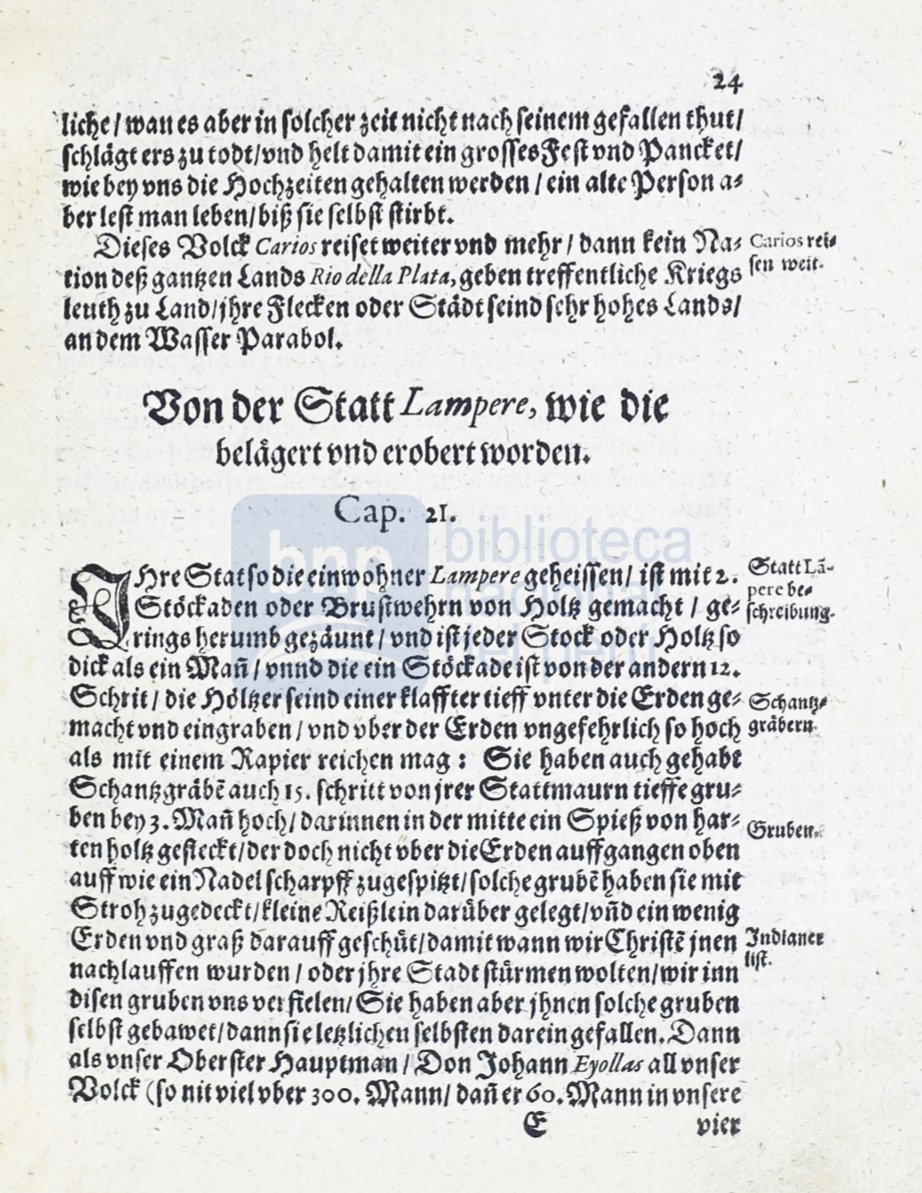 24
liche / wan es aber in solcher zeit nicht nach seinem gefallen thut /
schlägt ers zu todt / vnd helt damit ein grosses Fest vnd Pancket /
wie bey vns die Hochzeiten gehalten werden / ein alte Person a⸗
ber lest man leben / biß sie selbst stirbt.
Dieses Volck Carios reiset weiter vnd mehr / dann kein Na⸗
Carios rei⸗
sen weit.
tion deß gantzen Lands Rio della Plata, geben treffentliche Kriegs
leuth zu Land / jhre Flecken oder Städt seind sehr hohes Lands /
an dem Wasser Parabol.
Von der Statt Lampere, wie die
belägert vnd erobert worden.
Cap. 21.
IHre Stat so die einwohner Lampere geheissen / ist mit 2.
Statt Lā-
pere be⸗
schreibung.
Stöckaden oder Brustwehrn von Holtz gemacht / ge⸗
rings herumb gezäunt / vnd ist jeder Stock oder Holtz so
dick als ein Mañ / vnnd die ein Stöckade ist von der andern 12.
Schrit / die Höltzer seind einer klaffter tieff vnter die Erden ge⸗
Schantz⸗
gräbern.
macht vnd eingraben / vnd vber der Erden vngefehrlich so hoch
als mit einem Rapier reichen mag : Sie haben auch gehabt
Schantzgräbē auch 15. schritt von jrer Stattmaurn tieffe gru⸗
ben bey 3. Mañ hoch / darinnen in der mitte ein Spieß von har⸗
Gruben.
ten holtz gesteckt / der doch nicht vber die Erden auffgangen oben
auff wie ein Nadel scharpff zugespitzt / solche grubē haben sie mit
Stroh zugedeckt / kleine Reißlein darüber gelegt / vñd ein wenig
Erden vnd graß darauff geschüt / damit wann wir Christē jnen
Indianer
list.
nachlauffen wurden / oder jhre Stadt stürmen wolten / wir inn
disen gruben vns verfielen / Sie haben aber jhnen solche gruben
selbst gebawet / dann sie letzlichen selbsten darein gefallen. Dann
als vnser Oberster Hauptman / Don Johann Eyollas all vnser
Volck (so nit viel vber 300. Mann / dañ er 60. Mann in vnsere
E
vier
bnp biblioteca
nacional
del perú